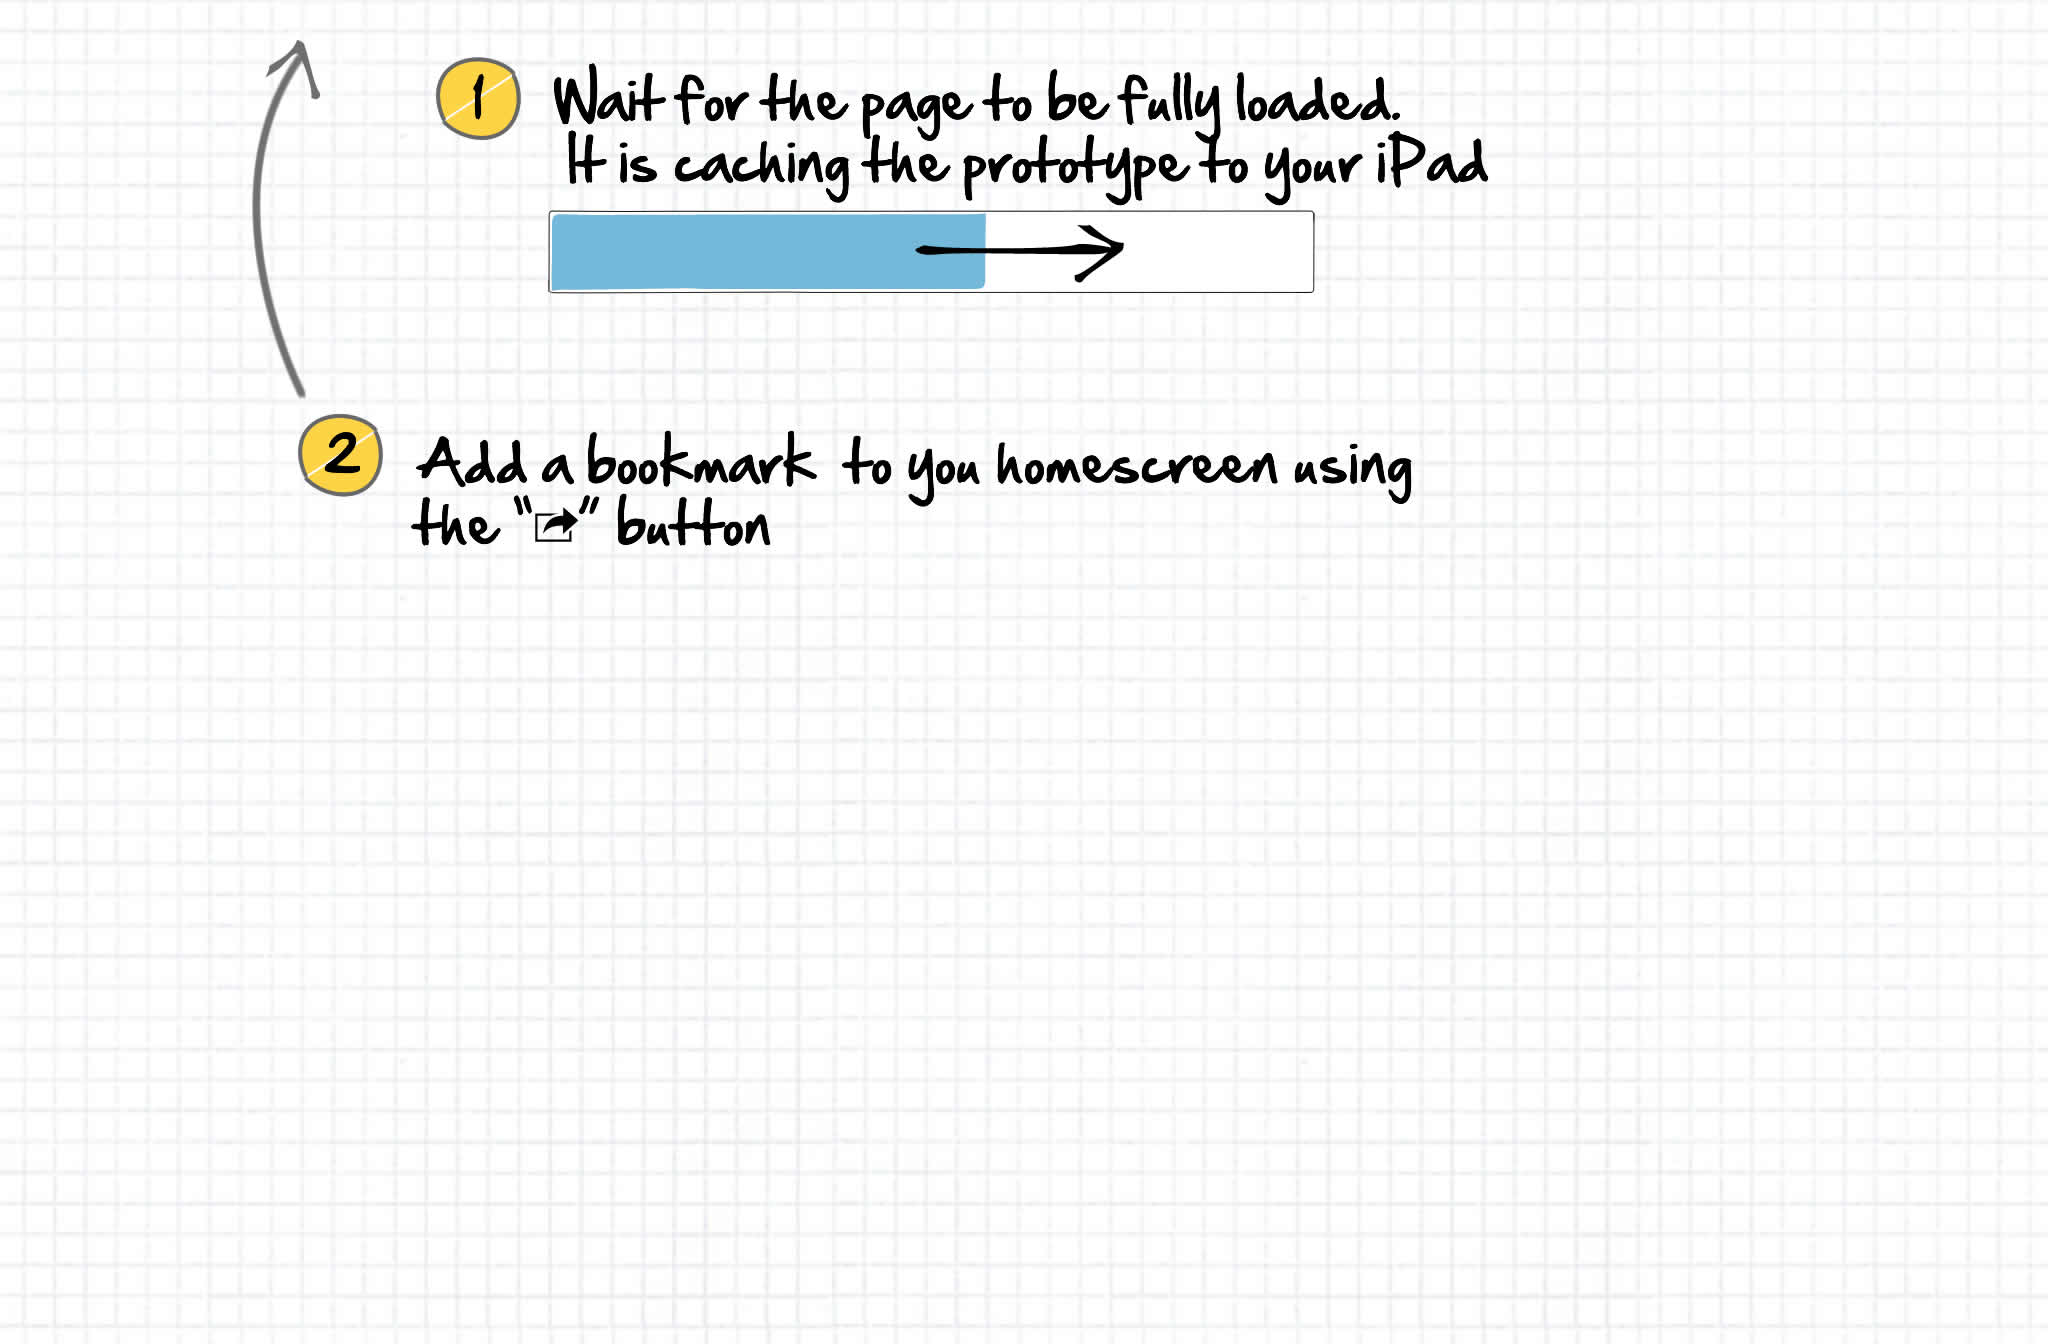 1 Wait for the page to be fully loaded.
It is caching the prototype to your iPad
2 Add a bookmark to you homescreen using
the "" button